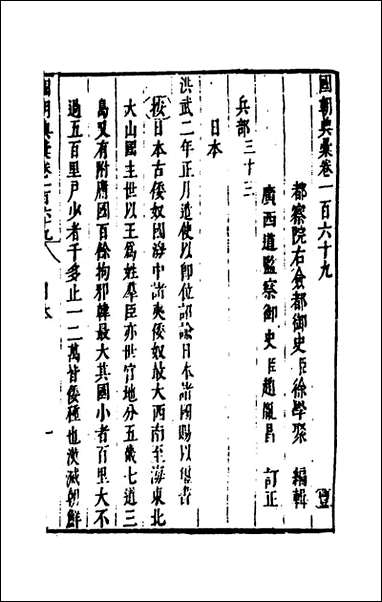 國朝典彙卷一百六十九
都察院右僉都御史臣徐學聚 編輯
廣西道監察御史臣趙胤昌 訂正
兵部三十三
日本
洪武二年正月遣使以即位詔諭日本諸國賜以璽書
按日本古倭奴國海中諸夷倭奴最大西南至海東北
大山國主世以王為姓羣臣亦世官地分五畿七道三
島又有附庸國百餘拘邪韓最大其國小者百里大不
過五百里戶少者千多止一二萬皆倭種也漢滅朝鮮
國朝典彙卷一百六九
日本
一